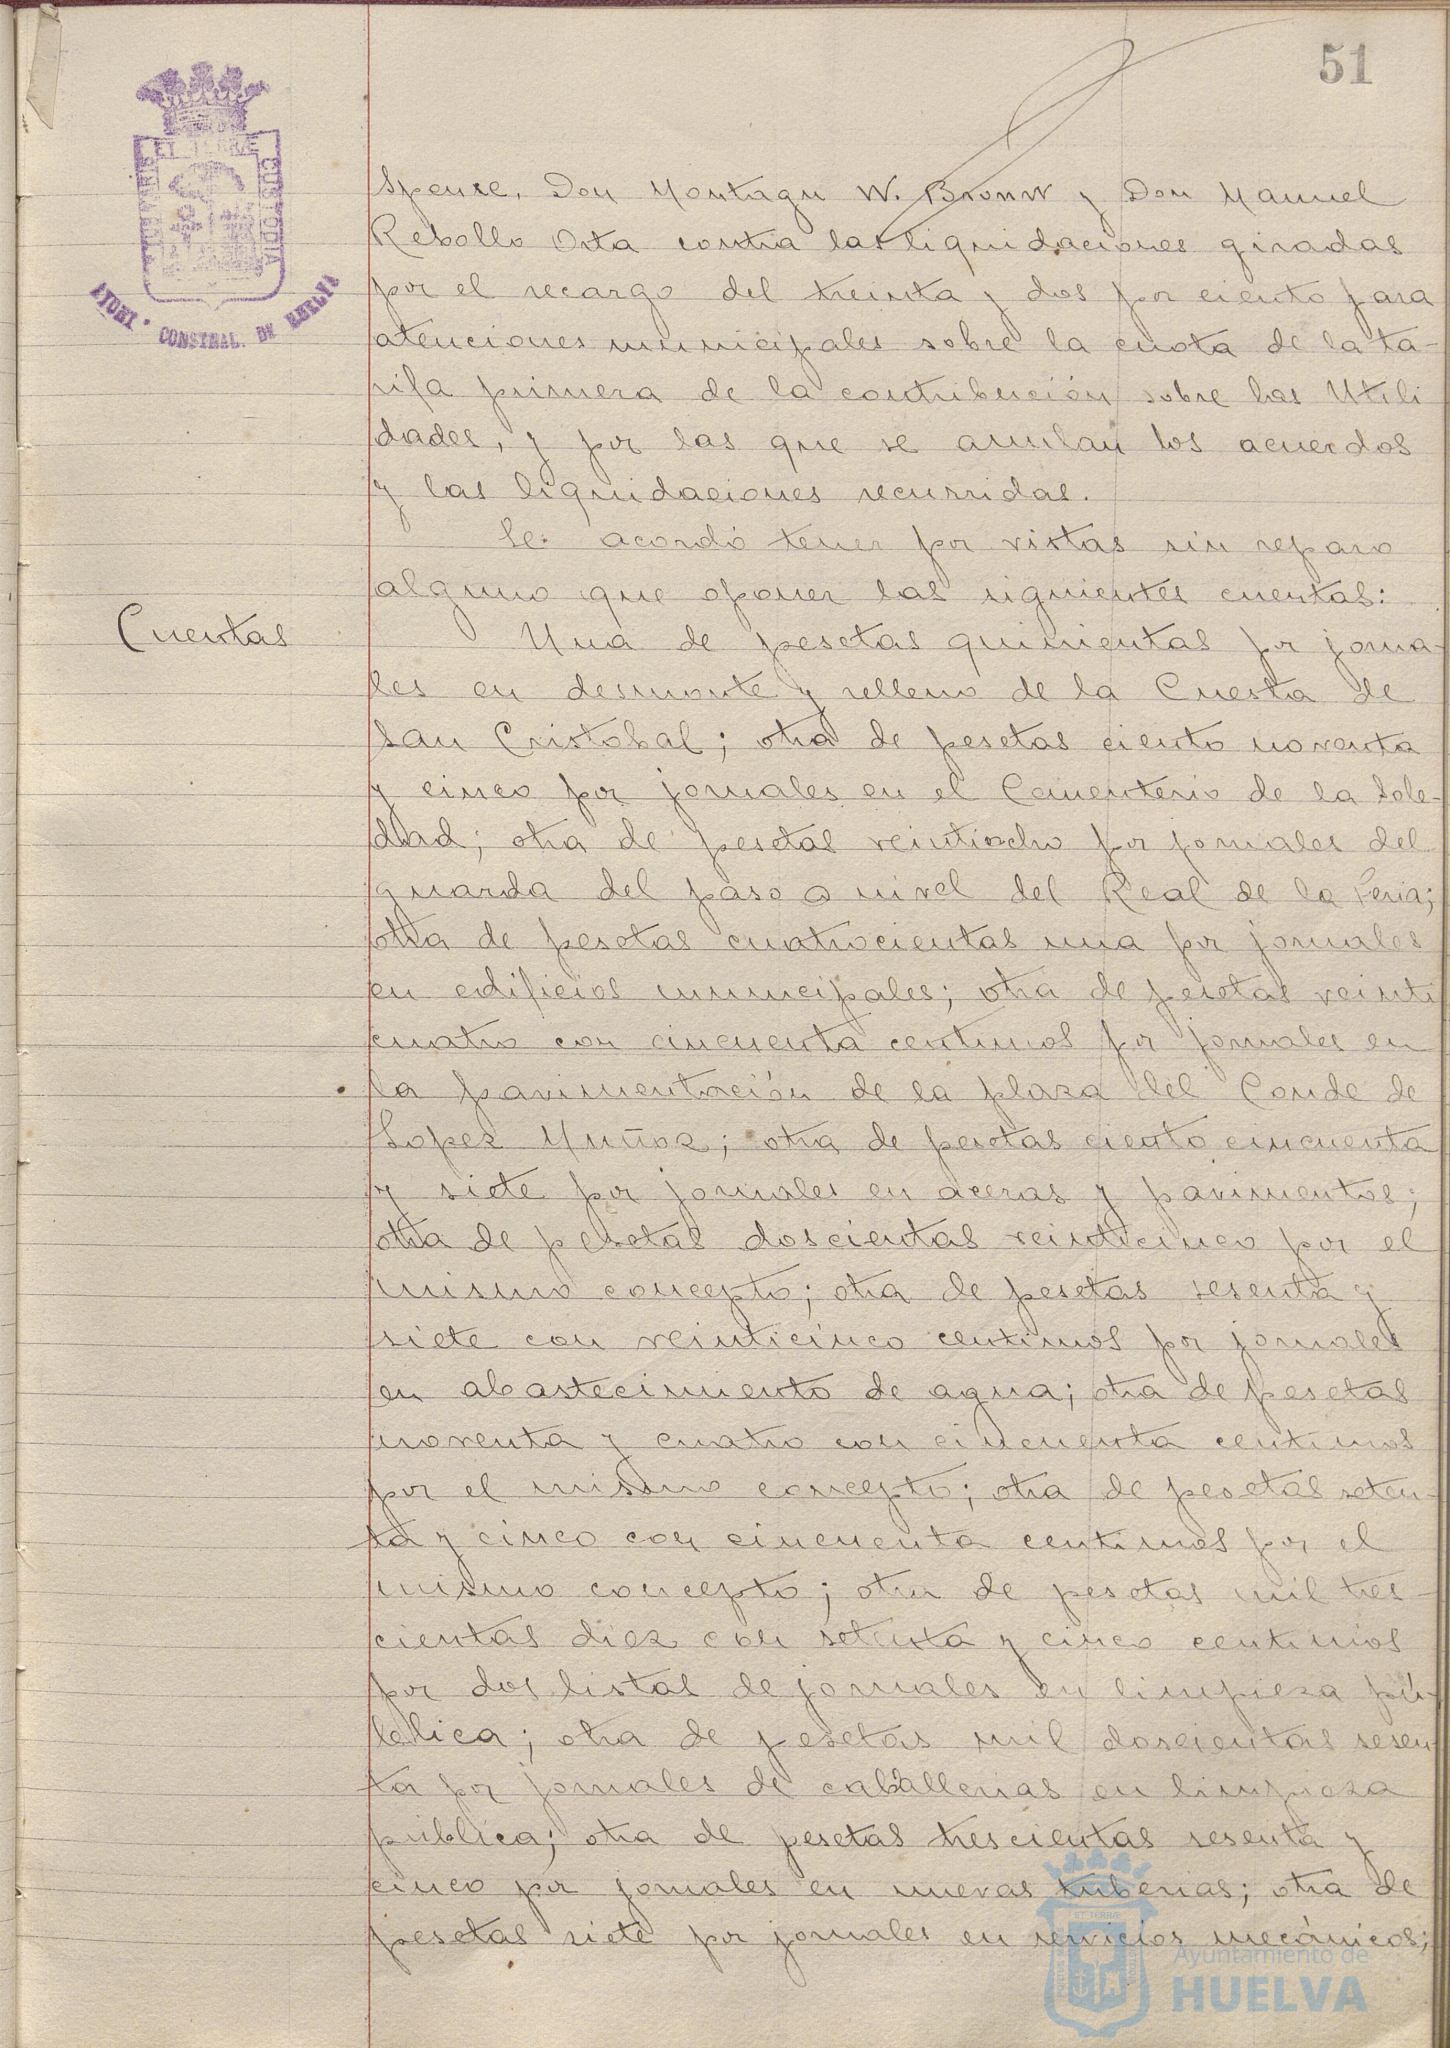 51
PORTUS MARIS ET TERRAE CUSTODIA
AYUNT. CONSTNAL. DE HUELVA
Spence, Don Montagu W. Brown y Don Manuel
Rebollo Orta contra las liquidaciones giradas
por el recargo del treinta y dos por ciento para
atenciones municipales sobre la cuota de la ta-
rifa primera de la contribución sobre las Utili
dades, y por las que se anulan los acuerdos
y las liquidaciones recurridas.
Se acordó tener por vistas sin reparo
alguno que oponer las siguientes cuentas:
Cuentas
Una de pesetas quinientas por jorna-
les en desmonte y relleno de la Cuesta de
San Cristobal; otra de pesetas ciento noventa
y cinco por jornales en el Cementerio de la Sole-
dad; otra de pesetas veintiocho por jornales del
guarda del paso a nivel del Real de la Feria;
otra de pesetas cuatrocientas una por jornales
en edificios municipales; otra de pesetas veinti
cuatro con cincuenta centimos por jornales en
la pavimentación de la plaza del Conde de
Lopez Muñoz; otra de pesetas ciento cincuenta
y siete por jornales en aceras y pavimentos;
otra de pesetas doscientas veinticinco por el
mismo concepto; otra de pesetas sesenta y
siete con veinticinco centimos por jornales
en abastecimiento de agua; otra de pesetas
noventa y cuatro con cincuenta centimos
por el mismo concepto; otra de pesetas seten-
ta y cinco con cincuenta centimos por el
mismo concepto; otra de pesetas mil tres-
cientas diez con setenta y cinco centimos
por dos listas de jornales en limpieza pú-
blica; otra de pesetas mil doscientas sesen-
ta por jornales de caballerias en limpieza
pública; otra de pesetas trescientas sesenta y
cinco por jornales en nuevas tuberias; otra de
pesetas siete por jornales en servicios mecánicos;
Ayuntamiento de
HUELVA